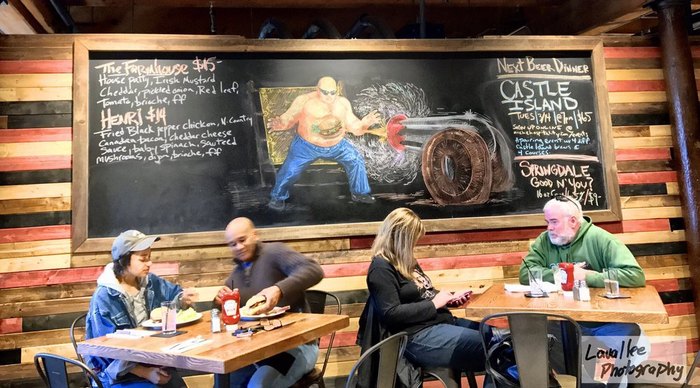 The Farmhouse $15-
House patty, Irish Mustard
Cheddar, pickled onion, Red leaf,
Tomato, brioche, ff
HENRI $14
Fried Black pepper chicken, N. Country
Canadian bacon, cheddar cheese
sauce, baby spinach, sauteed
mushrooms, dijon, brioche, ff
Next Beer Dinner
CASTLE
ISLAND
TUES $65
SIGN UP ONLINE @
Castle Island beers &
4 courses
SPRINGDALE
Good N' You?
$9-
Lavallee
Photography